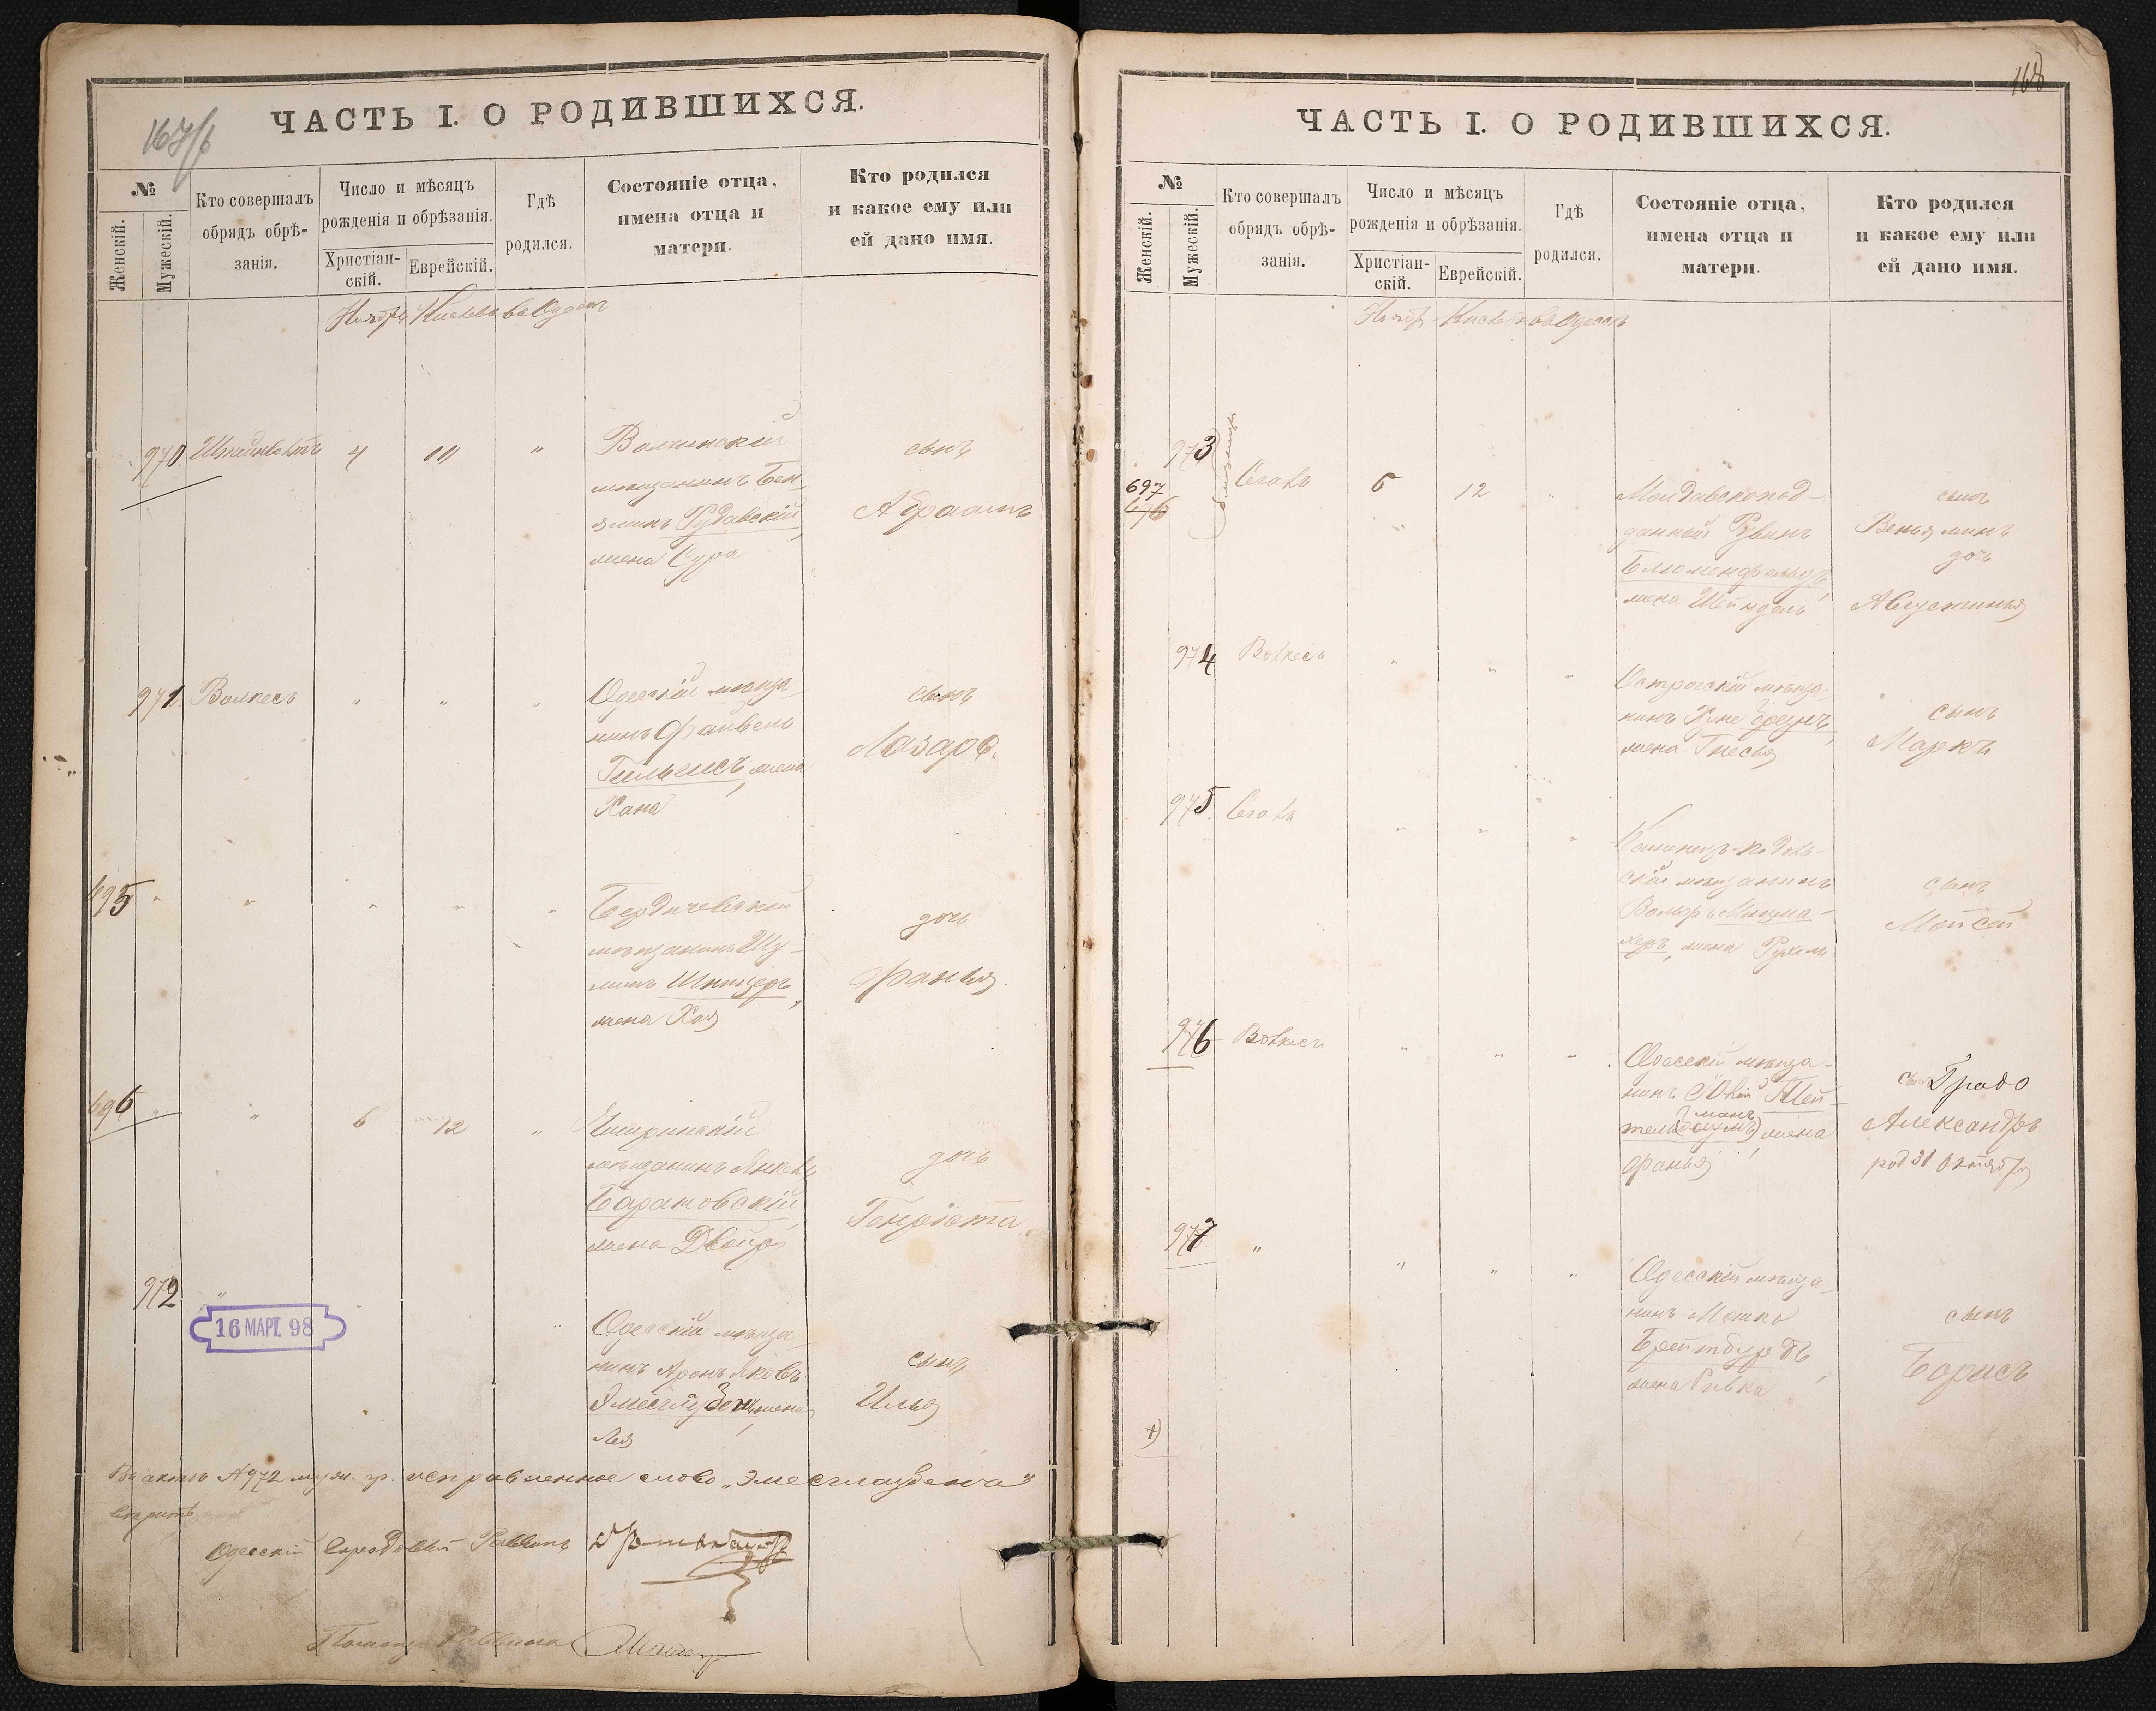 167/б
ЧАСТЬ I. О РОДИВШИХСЯ.
№
Женскій.
Мужескій.
Кто совершалъ
обрядъ обрѣ-
занія.
Число и мѣсяцъ
рожденія и обрѣзанія.
Христіан-
скій.
Еврейскій.
Гдѣ
родился.
Состояніе отца,
имена отца и
матери.
Кто родился
и какое ему или
ей дано имя.
Ноябрь Кислевъ въ Одессѣ
970 4 10 "
мѣщанинъ Бен-
ямин Рудавскій,
жена Сура
сынъ
Абраамъ
971 Волкесъ " " "
Одесскій мѣща-
нинъ Файвель
Гильгисъ, жена
Хана
сынъ
Лазарь.
695 " " " " "
Бердичевскій
мѣщанинъ Шу-
лимъ Шницеръ,
жена Хая
дочь
Фанья.
696 " " 6 12 "
мѣщанинъ Янкель
Барановскій,
жена Двойра
дочь
Генріета
972 "
16 МАРТ. 98
Одесскій мѣща-
нинъ Аронъ Яковъ
жена
Лея
сынъ
Илья
Въ актѣ №972 муж. гр. исправленное слово „Эмесглаубенъ"
вѣрить
Одесскій Городовой Раввинъ
Помощ. Раввина
168
ЧАСТЬ I. О РОДИВШИХСЯ.
№
Женскій.
Мужескій.
Кто совершалъ
обрядъ обрѣ-
занія.
Число и мѣсяцъ
рожденія и обрѣзанія.
Христіан-
скій.
Еврейскій.
Гдѣ
родился.
Состояніе отца,
имена отца и
матери.
Кто родился
и какое ему или
ей дано имя.
Ноябрь Кислевъ въ Одессѣ
973
близнецы
697
Сегалъ 6 12 "
Молдавскопод-
данный Рувинъ
Блюменфельдъ,
жена Шейндель
сынъ
Веньяминъ
дочь
Августинья
974 Волкесъ " " "
Острогскій мѣща-
нинъ
жена Гнесья
сынъ
Маркъ
975 Сегалъ " " "
Каменецъ-Подоль-
скій мѣщанинъ
Вольфъ
жена Рухель
сынъ
Мойсей
976 Волкесъ " " "
Одесскій мѣща-
нинъ
жена
Фанья
сынъ
Александръ
род 31 Октября
977 " " " "
Одесскій мѣща-
нинъ Мошко
Брейтбурдъ,
жена Ривка
сынъ
Борисъ